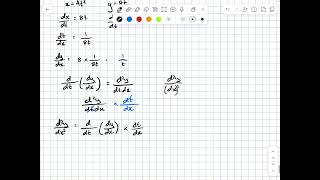 x = 4t² y = 8t
dx/dt = 8t dy/dt
dt/dx = 1/8t
dy/dx = 8 × 1/8t = 1/t
d/dt (dy/dx) = d²y/dtdx d²y/(dx)²
d²y/dtdx × dt/dx
d²y/dx² = d/dt (dy/dx) × dt/dx